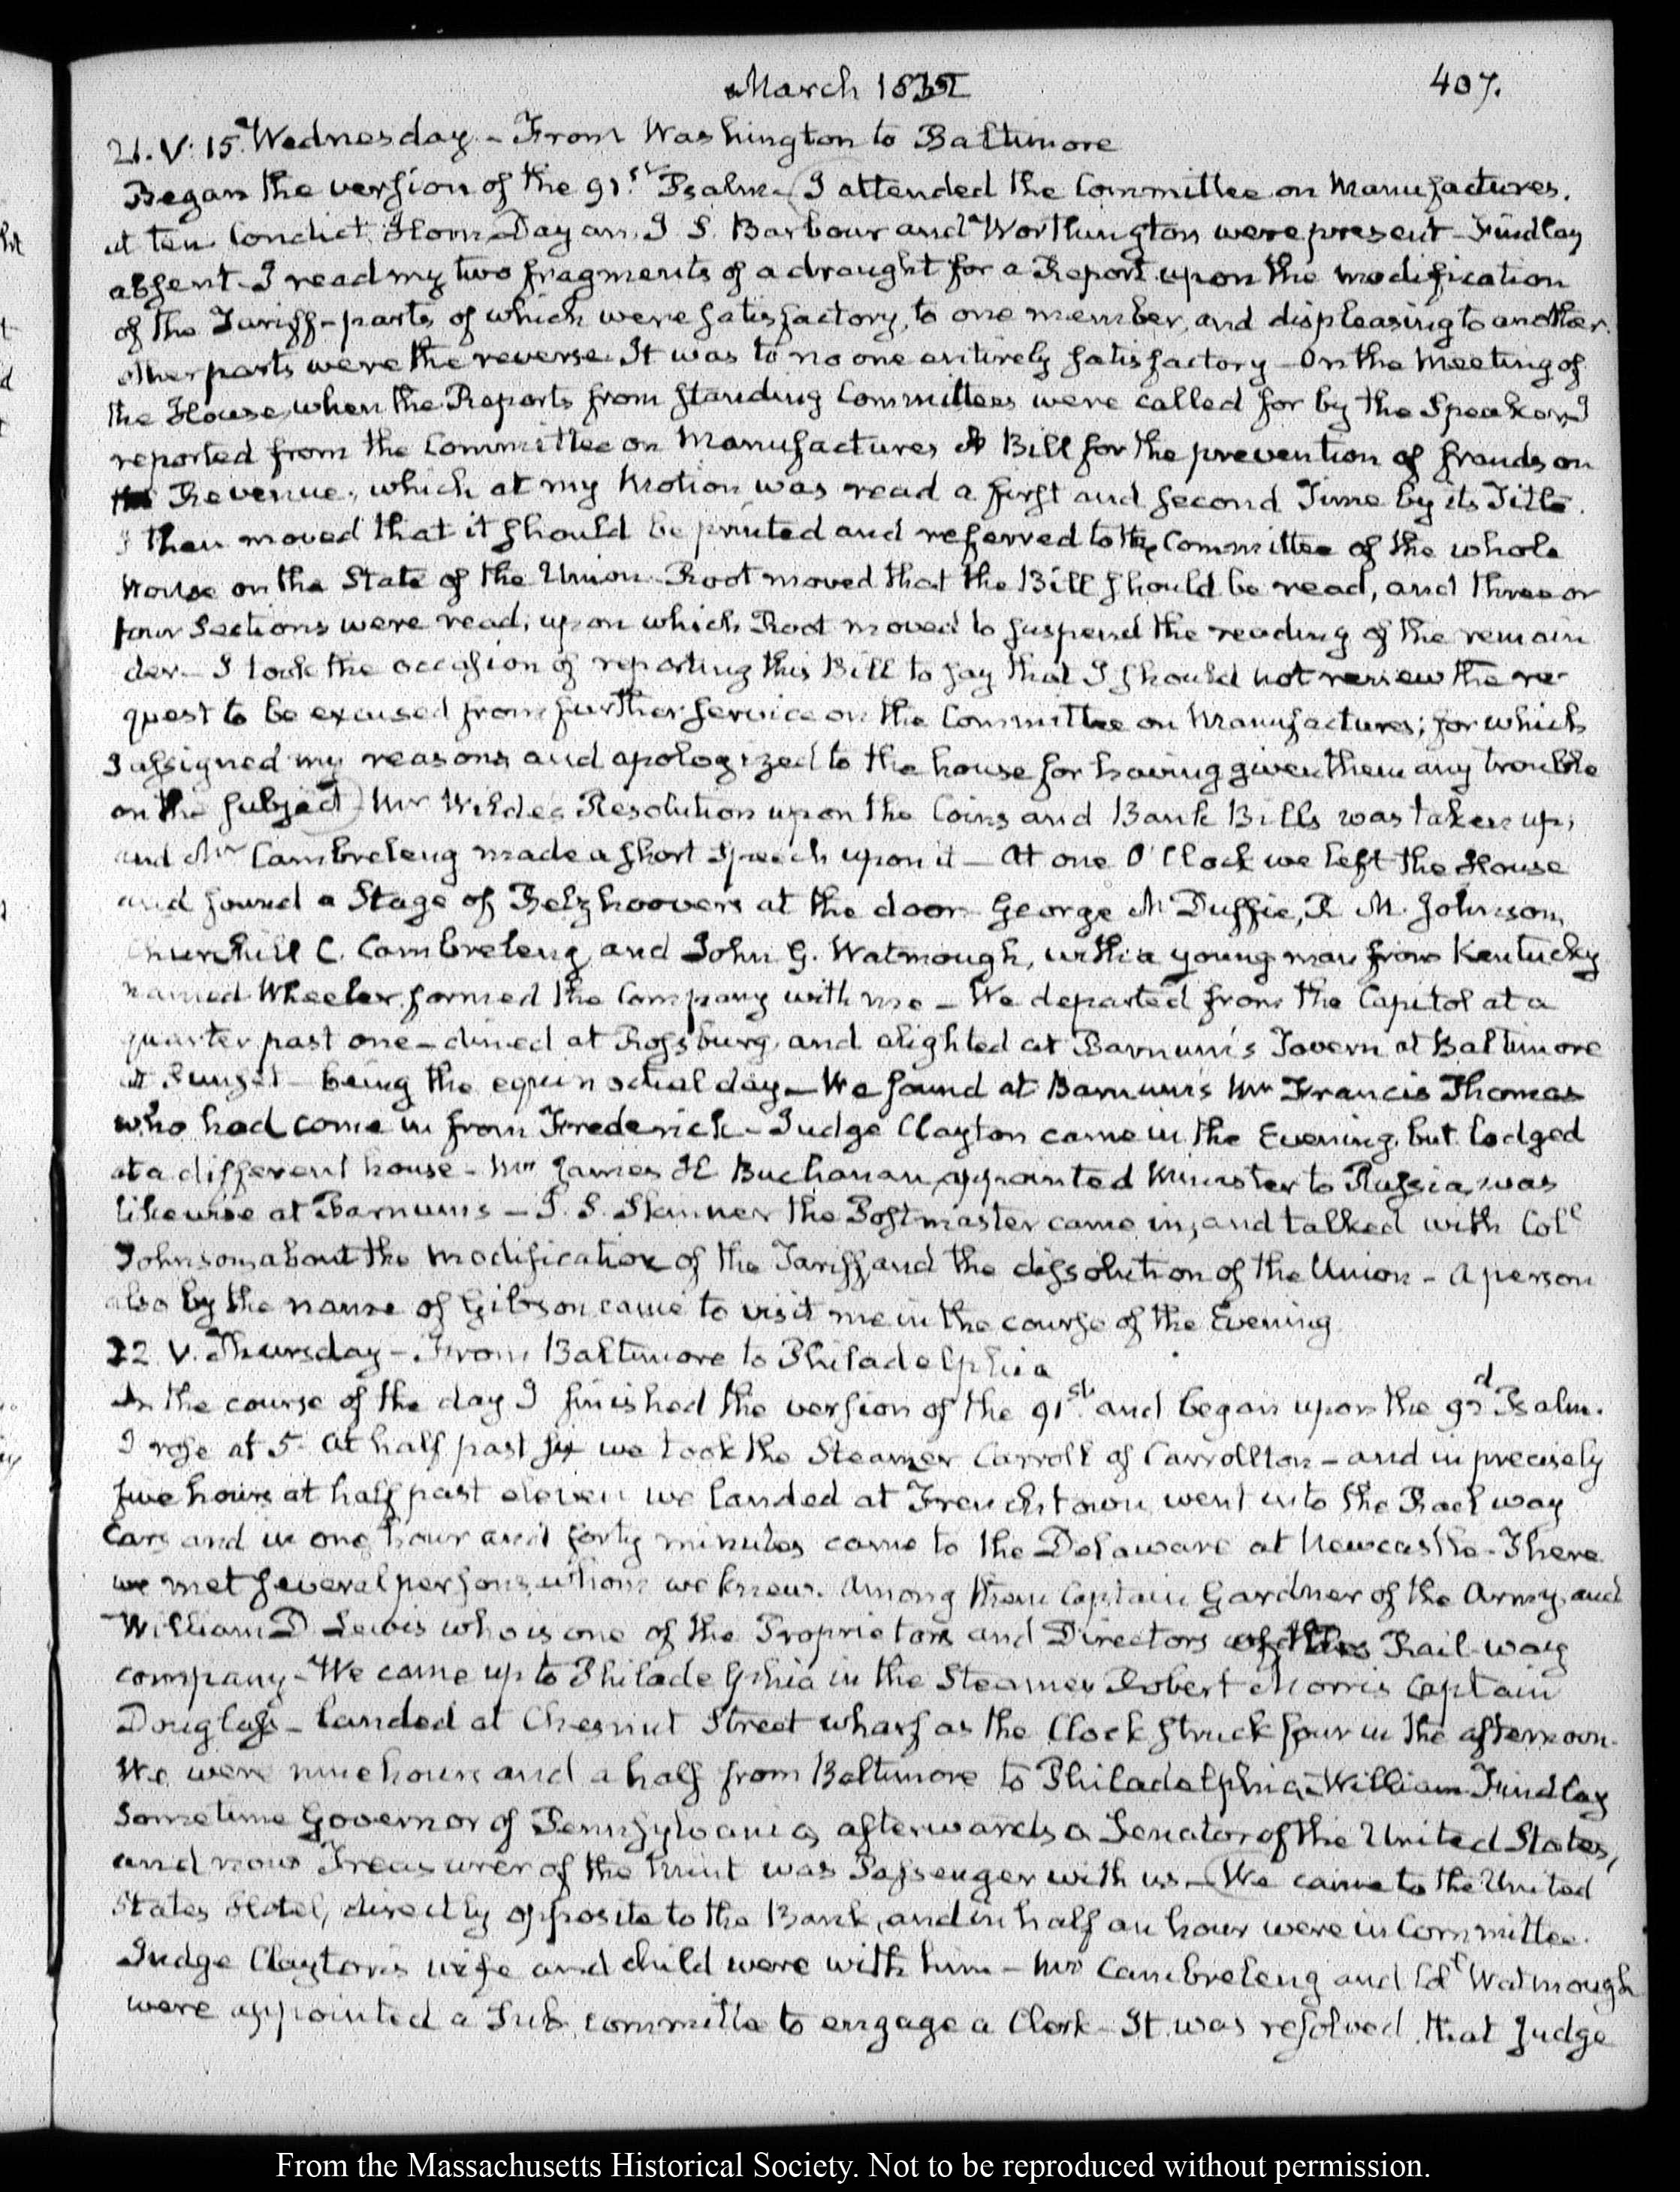 March 1832
407.
21. V: 15. Wednesday - From Washington to Baltimore
Began the version of the 91.st Psalm - I attended the Committee on Manufactures.
at ten Condict, Horn, Dayan, J S. Barbour and Worthington were present - Findlay
absent - I read my two fragments of a draught for a Report upon the modification
of the Tariff - parts of which were satisfactory, to one member, and displeasing to another.
other parts were the reverse. It was to no one entirely satisfactory - On the Meeting of
the House, when the Reports from standing Committees were called for by the Speaker, I
reported from the Committee on Manufactures A Bill for the prevention of frauds on
the Revenue, which at my Motion was read a first and second Time by its Title.
I then moved that it should be printed and referred to the Committee of the whole
House on the State of the Union - Root moved that the Bill should be read, and three or
four Sections were read, upon which Root moved to suspend the reading of the remain
der - I took the occasion of reporting this Bill to say that I should not renew the re-
quest to be excused from further service on the Committee on Manufactures; for which
I assigned my reasons and apologized to the house for having given them any trouble
on the subject - Mr Wilde's Resolution upon the Coins and Bank Bills was taken up,
and Mr Cambreleng made a short speech upon it - At one O'Clock we left the House
and found a Stage of Belzhoover's at the door - George McDuffie, R. M. Johnson,
Churchill C. Cambreleng, and John G. Watmough, with a young man from Kentucky
named Wheeler, formed the Company with me - We departed from the Capitol at a
quarter past one - dined at Rossburg, and alighted at Barnum's Tavern at Baltimore
at Sunset - being the equinoctial day - We found at Barnum's Mr Francis Thomas
who had come in from Frederick - Judge Clayton came in the Evening, but lodged
at a different house - Mr James Buchanan, appointed Minister to Russia, was
likewise at Barnum's - J. S. Skinner the Postmaster came in, and talked with Coll
Johnson, about the modification of the Tariff, and the dissolution of the Union - A person
also by the name of Gibson came to visit me in the course of the Evening
22. V. Thursday - From Baltimore to Philadelphia
In the course of the day I finished the version of the 91st. and began upon the 92d Psalm.
I rose at 5. At half past six we took the Steamer Carroll of Carrollton - and in precisely
five hours at half past eleven we landed at Frenchtown, went into the Rail way
Cars and in one hour and forty minutes came to the Delaware at Newcastle - There
we met several persons, whom we knew. Among them Captain Gardner of the Army, and
William D. Lewis who is one of the Proprietors and Directors of this Rail-way
company - We came up to Philadelphia in the Steamer Robert Morris Captain
Douglass - landed at Chesnut Street wharf as the Clock struck four in the afternoon.
We were nine hours and a half from Baltimore to Philadelphia - William Findlay
Sometime Governor of Pennsylvania, afterwards a Senator of the United States,
and now Treasurer of the Mint was Passenger with us - We came to the United
States Hotel, directly opposite to the Bank, and in half an hour were in Committee.
Judge Clayton's wife and child were with him - Mr Cambreleng and Coll Watmough
were appointed a Sub. committee to engage a Clerk - It was resolved that Judge
From the Massachusetts Historical Society. Not to be reproduced without permission.